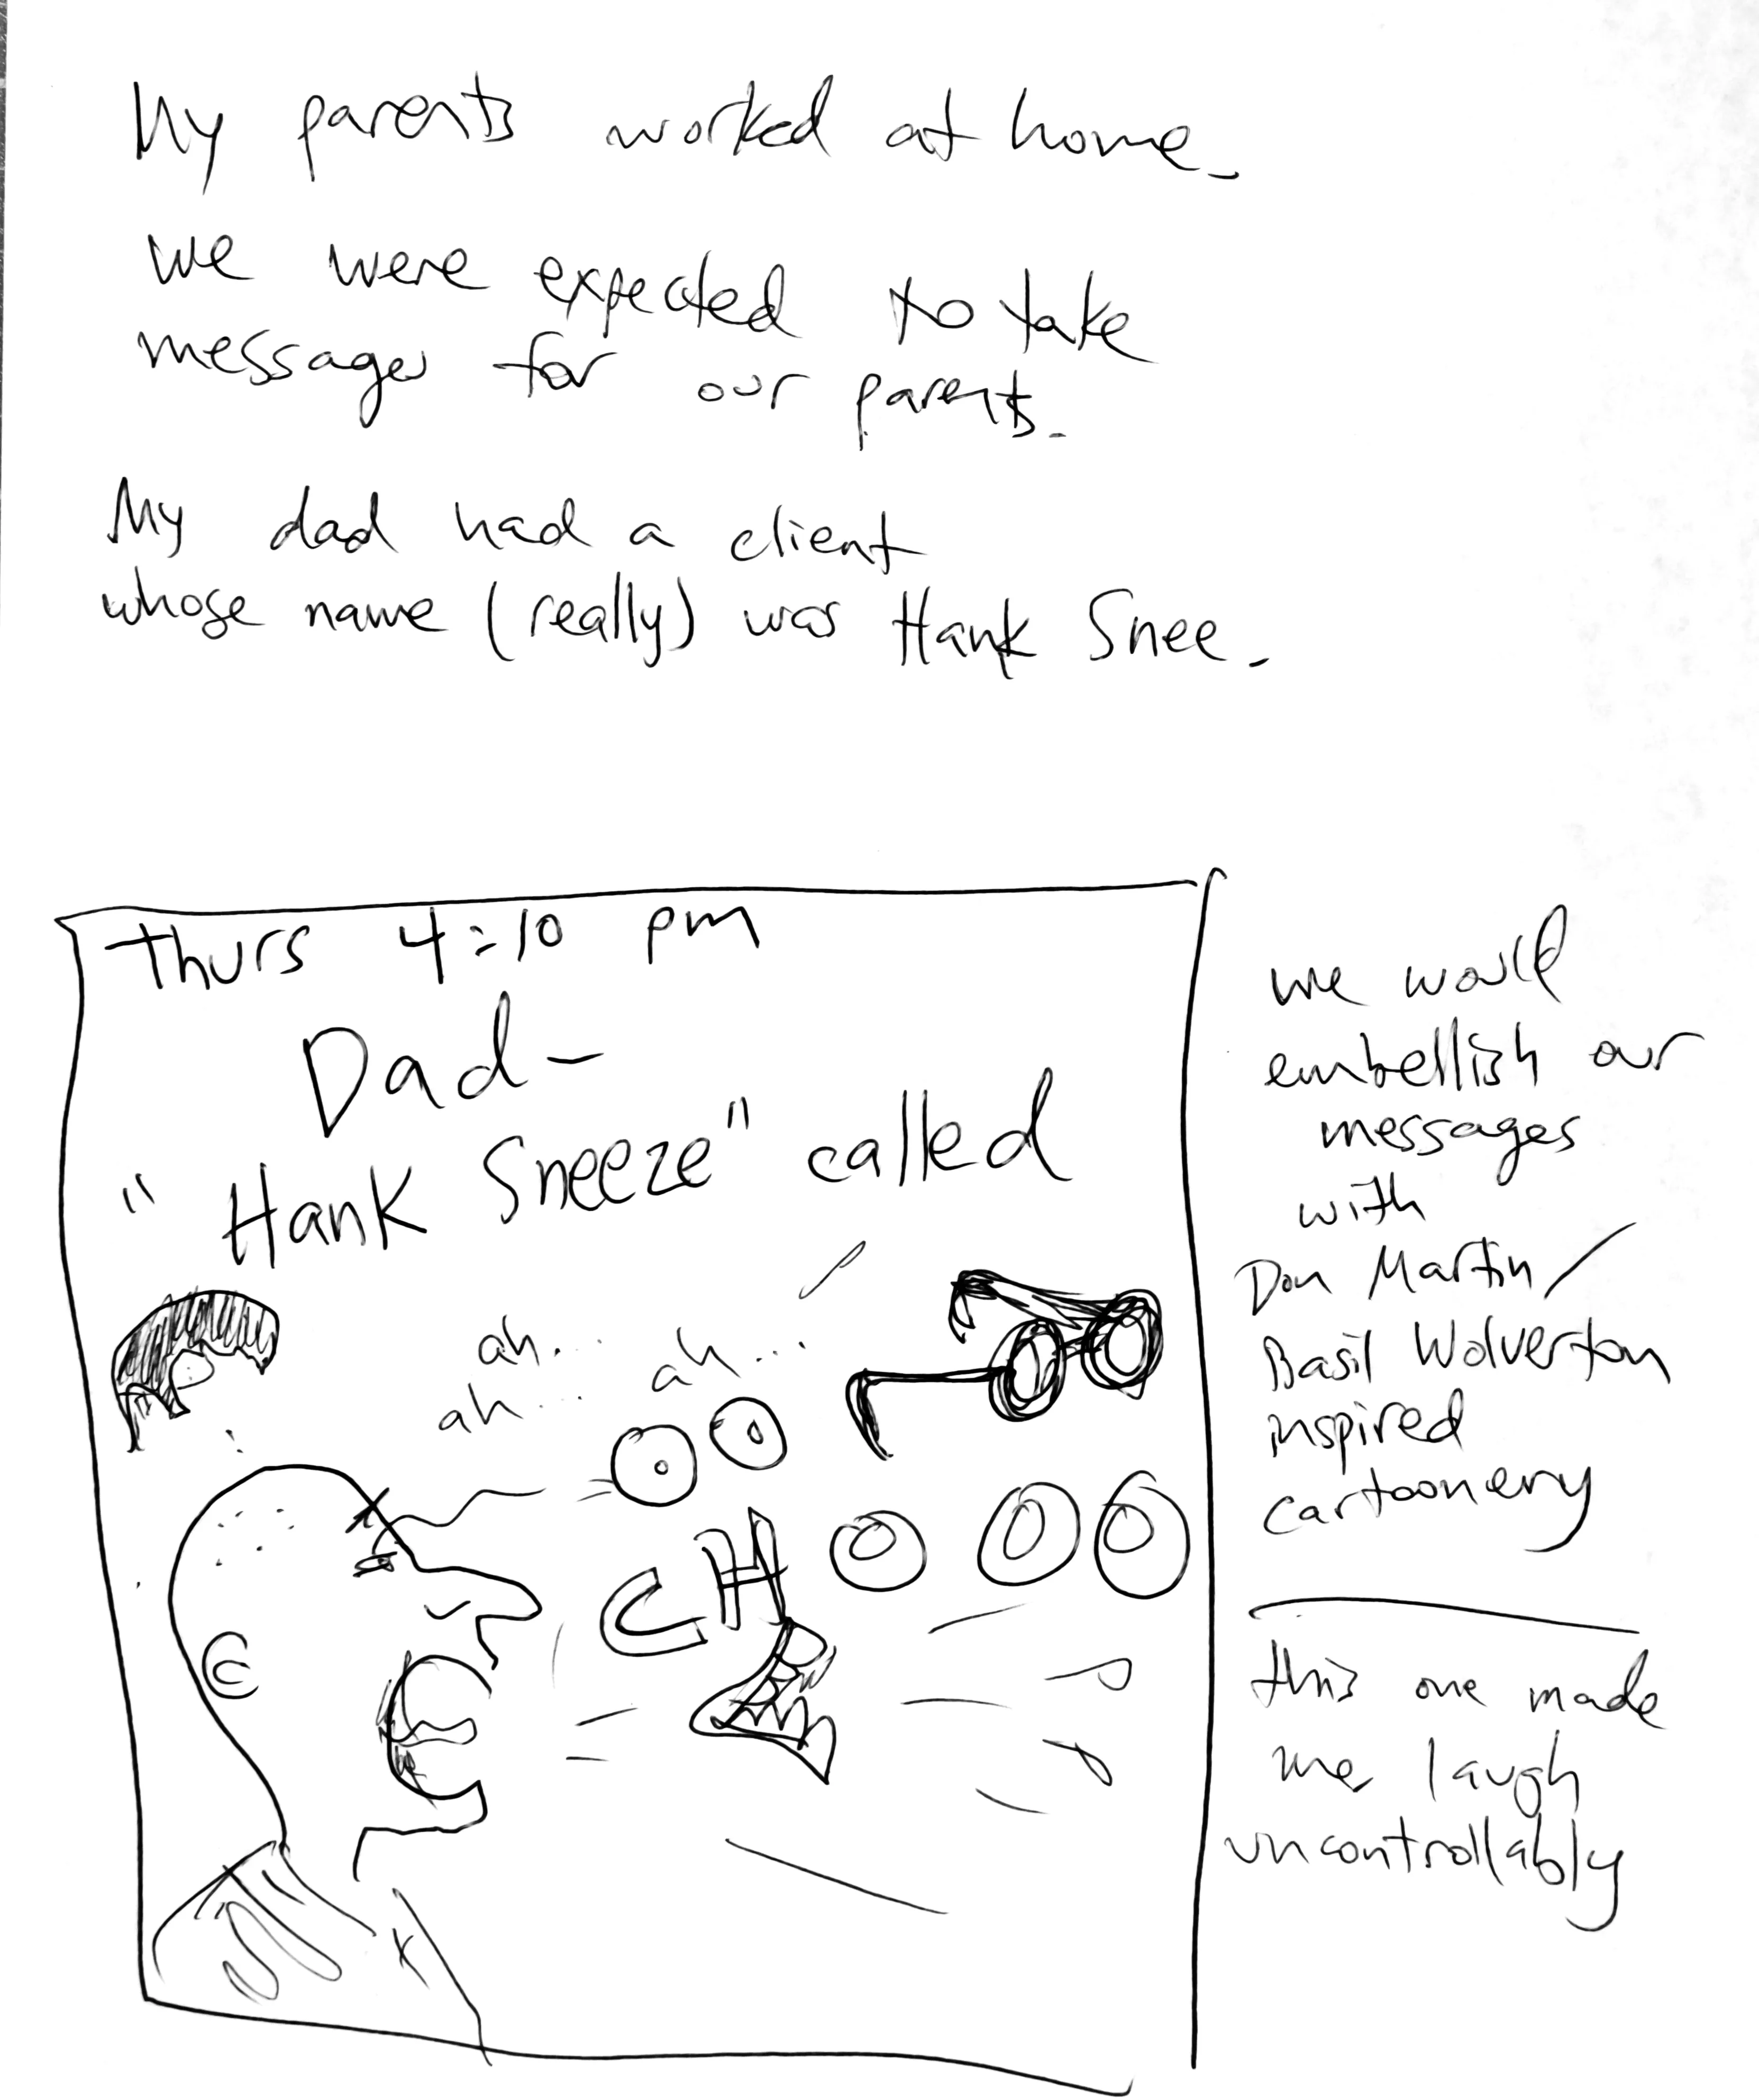 My parents worked at home.
We were expected to take
messages for our parents.
My dad had a client
whose name (really) was Hank Snee.
Thurs 4:10 pm
Dad-
"Hank Sneeze" called
ah... ah...
ah...
CHOOOOO
we would
embellish our
messages
with
Don Martin/
Basil Wolverton
inspired
cartoonery
this one made
me laugh
uncontrollably